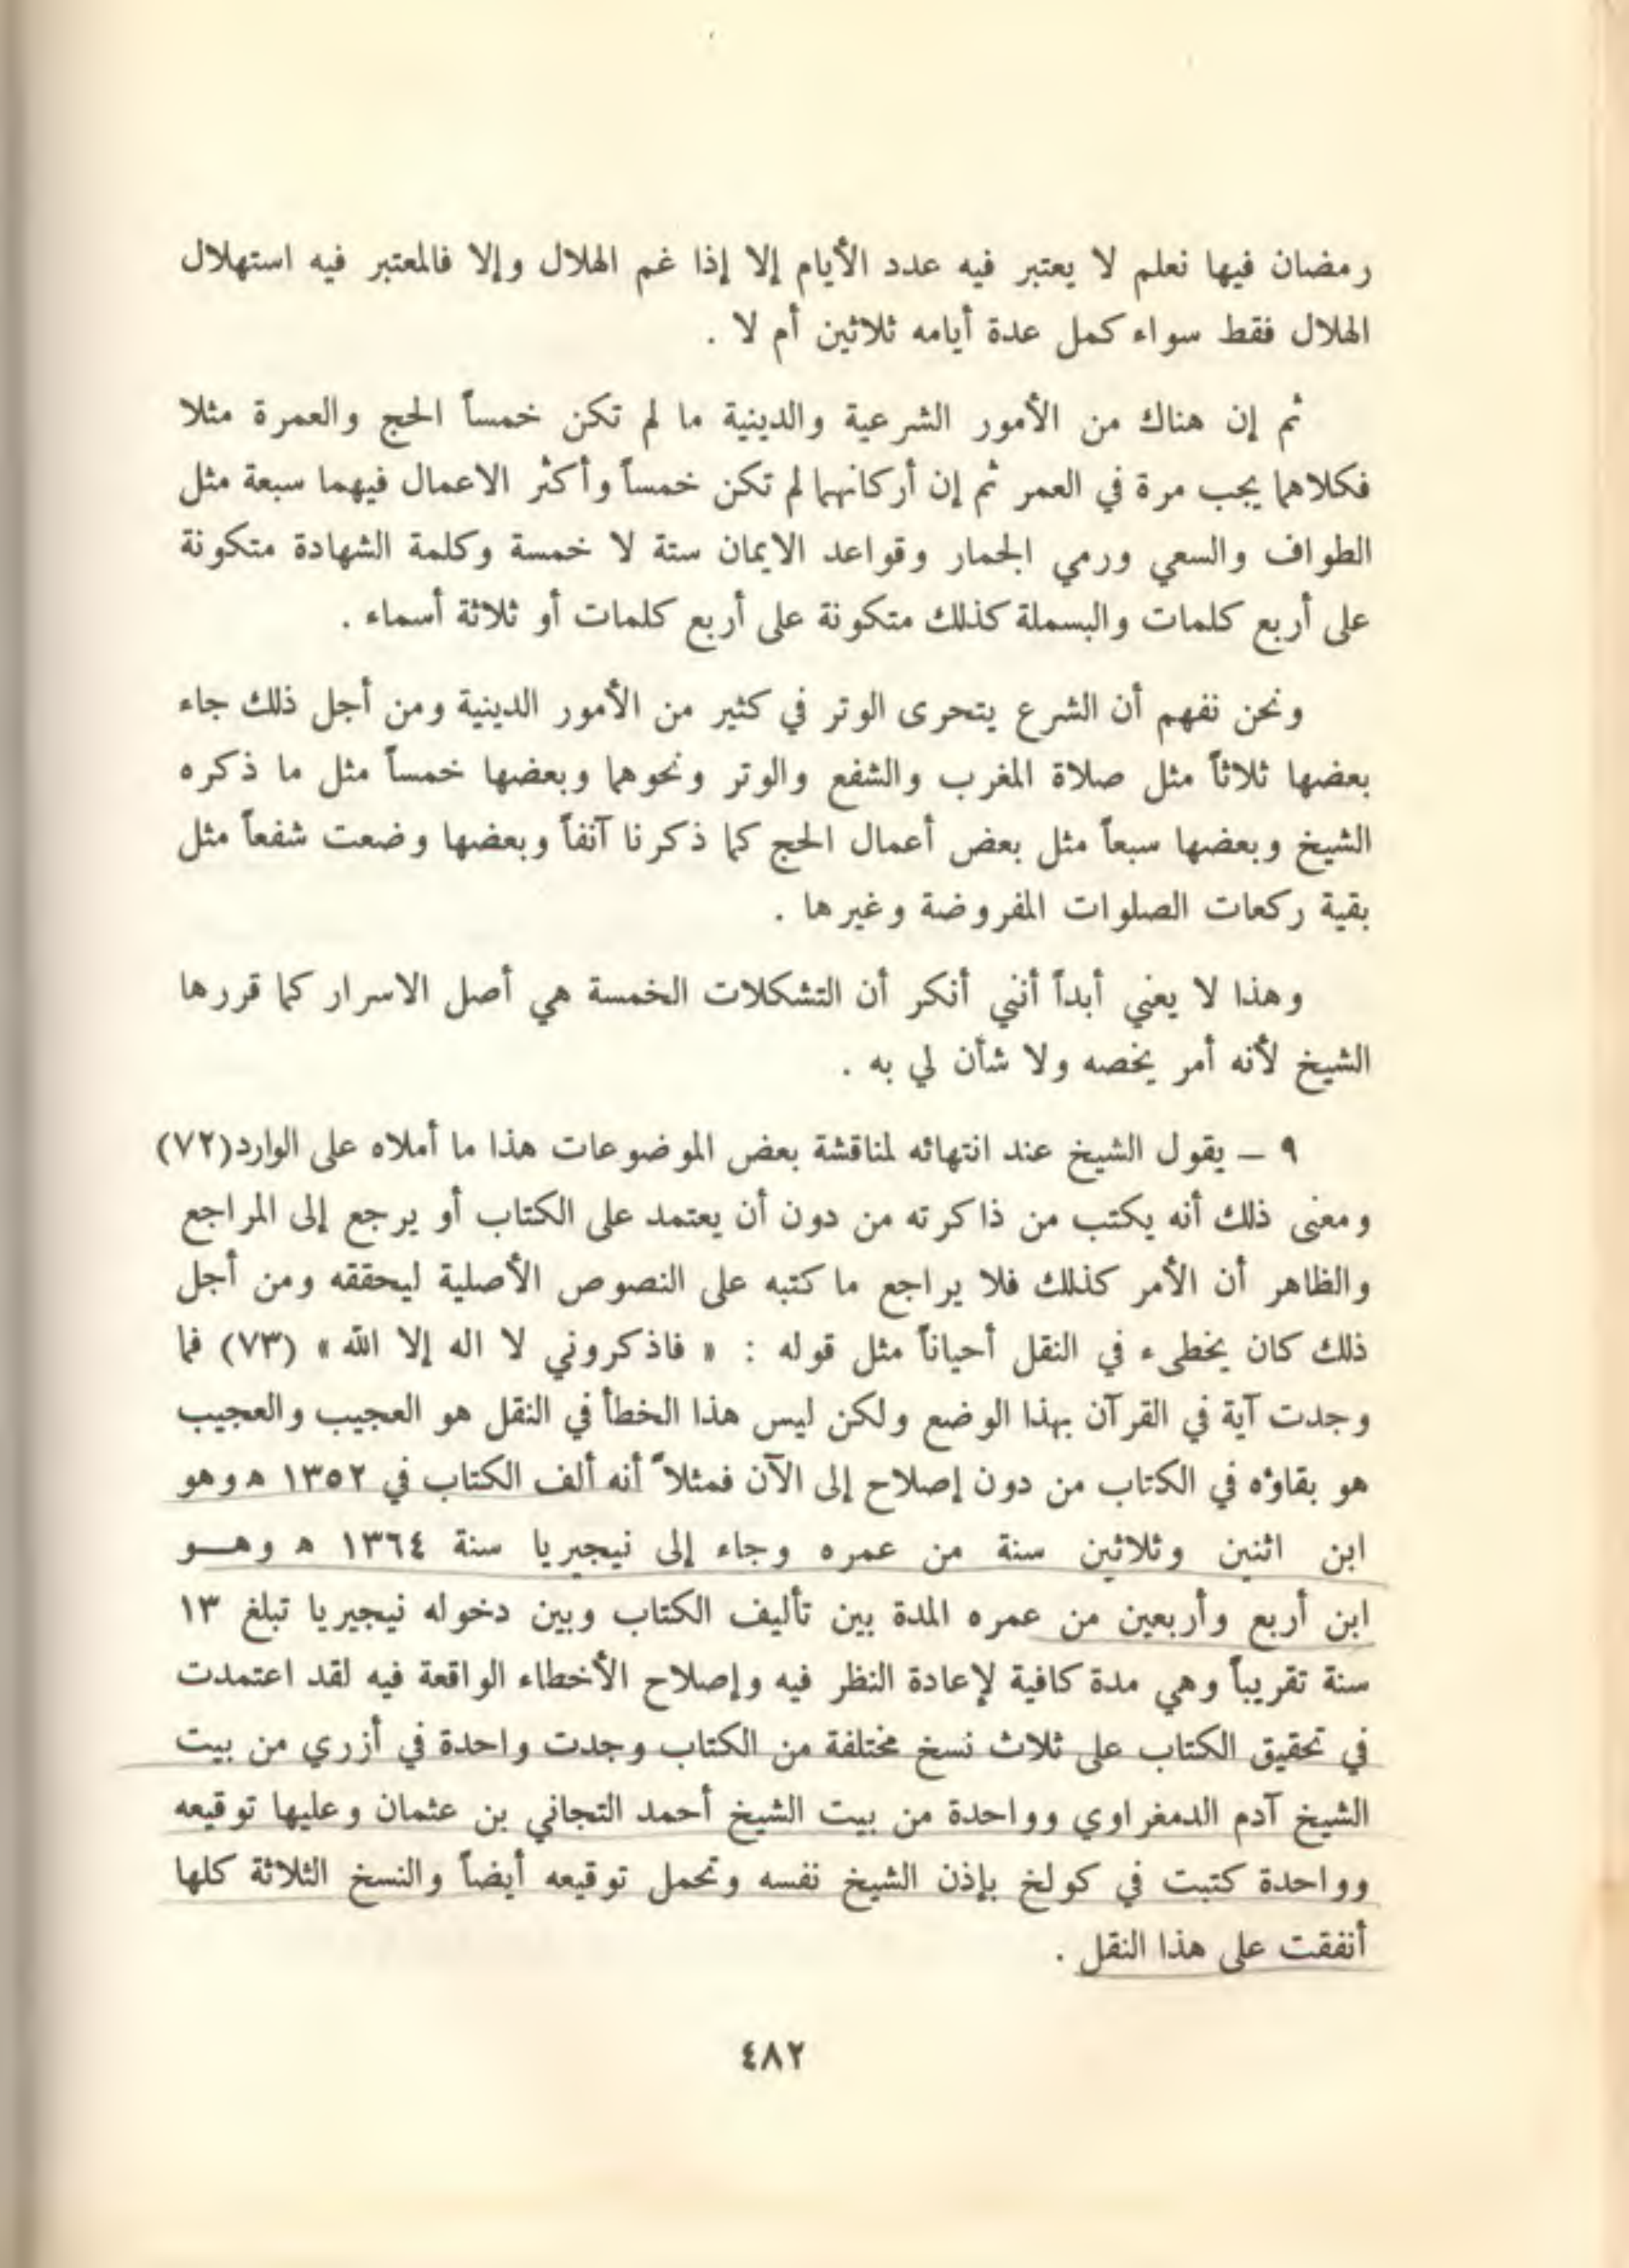 رمضان فيها نعلم لا يعتبر فيه عدد الأيام إلا إذا غم الهلال وإلا فالمعتبر فيه استهلال
الهلال فقط سواء كمل عدة أيامه ثلاثين أم لا .
ثم إن هناك من الأمور الشرعية والدينية ما لم تكن خمساً الحج والعمرة مثلا
فكلاهما يجب مرة في العمر ثم إن أركانهما لم تكن خمساً وأكثر الاعمال فيهما سبعة مثل
الطواف والسعي ورمي الجمار وقواعد الايمان ستة لا خمسة وكلمة الشهادة متكونة
على أربع كلمات والبسملة كذلك متكونة على أربع كلمات أو ثلاثة أسماء .
ونحن نفهم أن الشرع يتحرى الوتر في كثير من الأمور الدينية ومن أجل ذلك جاء
بعضها ثلاثاً مثل صلاة المغرب والشفع والوتر ونحوهما وبعضها خمساً مثل ما ذكره
الشيخ وبعضها سبعاً مثل بعض أعمال الحج كما ذكرنا آنفاً وبعضها وضعت شفعاً مثل
بقية ركعات الصلوات المفروضة وغيرها .
وهذا لا يعني أبداً أنني أنكر أن التشكلات الخمسة هي أصل الاسرار كما قررها
الشيخ لأنه أمر يخصه ولا شأن لي به .
٩ – يقول الشيخ عند انتهائه لمناقشة بعض الموضوعات هذا ما أملاه على الوارد(٧٢)
ومعنى ذلك أنه يكتب من ذاكرته من دون أن يعتمد على الكتاب أو يرجع إلى المراجع
والظاهر أن الأمر كذلك فلا يراجع ما كتبه على النصوص الأصلية ليحققه ومن أجل
ذلك كان يخطىء في النقل أحياناً مثل قوله : « فاذكروني لا اله إلا الله » (٧٣) فما
وجدت آية في القرآن بهذا الوضع ولكن ليس هذا الخطأ في النقل هو العجيب والعجيب
هو بقاؤه في الكتاب من دون إصلاح إلى الآن فمثلاً أنه ألف الكتاب في ١٣٥٢ ه وهو
ابن اثنين وثلاثين سنة من عمره وجاء إلى نيجيريا سنة ١٣٦٤ ه وهــو
ابن أربع وأربعين من عمره المدة بين تأليف الكتاب وبين دخوله نيجيريا تبلغ ١٣
سنة تقريباً وهي مدة كافية لإعادة النظر فيه وإصلاح الأخطاء الواقعة فيه لقد اعتمدت
في تحقيق الكتاب على ثلاث نسخ مختلفة من الكتاب وجدت واحدة في أزري من بيت
الشيخ آدم الدمغراوي وواحدة من بيت الشيخ أحمد التجاني بن عثمان وعليها توقيعه
وواحدة كتبت في كولخ بإذن الشيخ نفسه وتحمل توقيعه أيضاً والنسخ الثلاثة كلها
أنفقت على هذا النقل .
٤٨٢